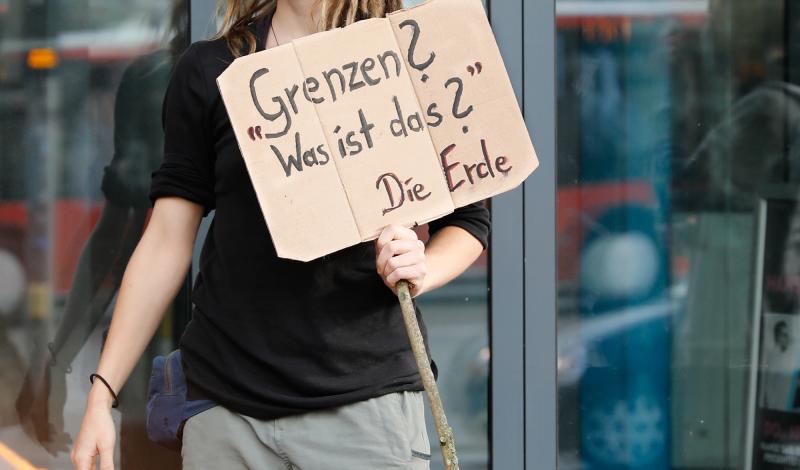 Grenzen?
"Was ist das?"
Die Erde